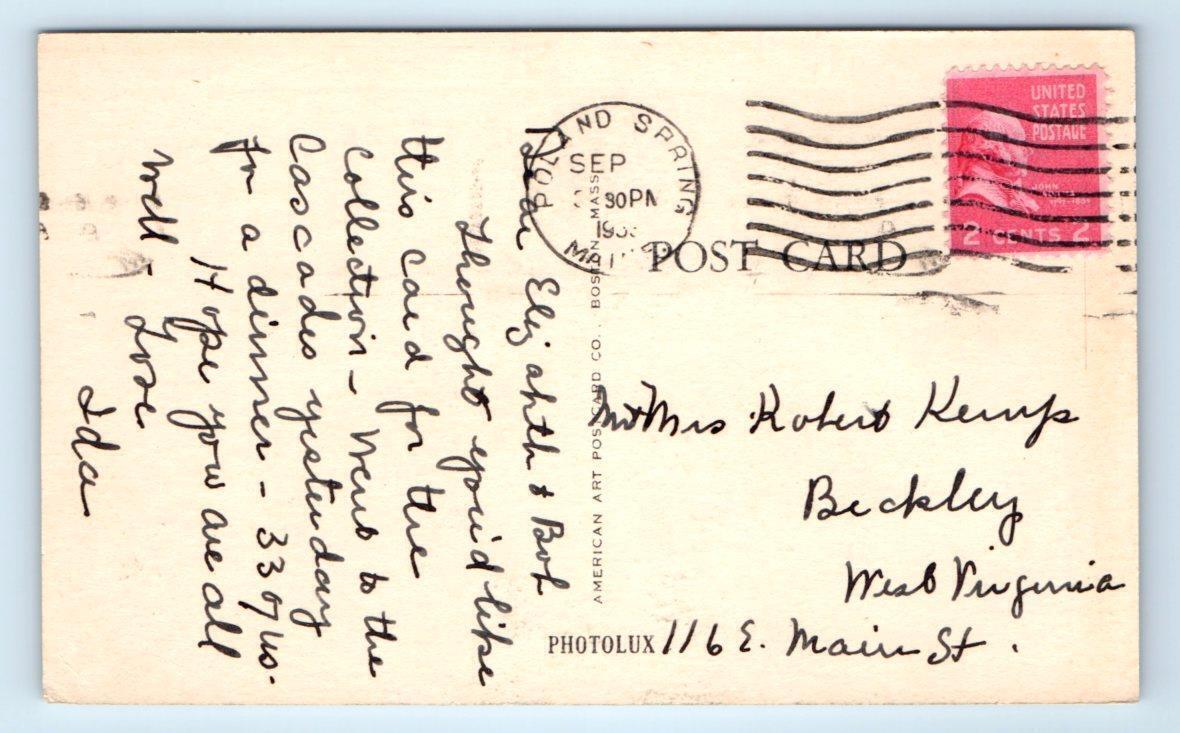 Dear Elizabeth & Bob
Thought you'd like
this card for the
Collection - Went to the
Cascades yesterday
for a dinner - 33 of us.
Hope you are all
well - Love
Ida
POLAND SPRING
SEP
30 PM
MAINE
UNITED
STATES
POSTAGE
JOHN
2 CENTS 2
POST CARD
AMERICAN ART POST CARD CO., BOSTON, MASS.
Mr & Mrs Robert Kemp
Beckley
West Virginia
116 E. Main St.
PHOTOLUX